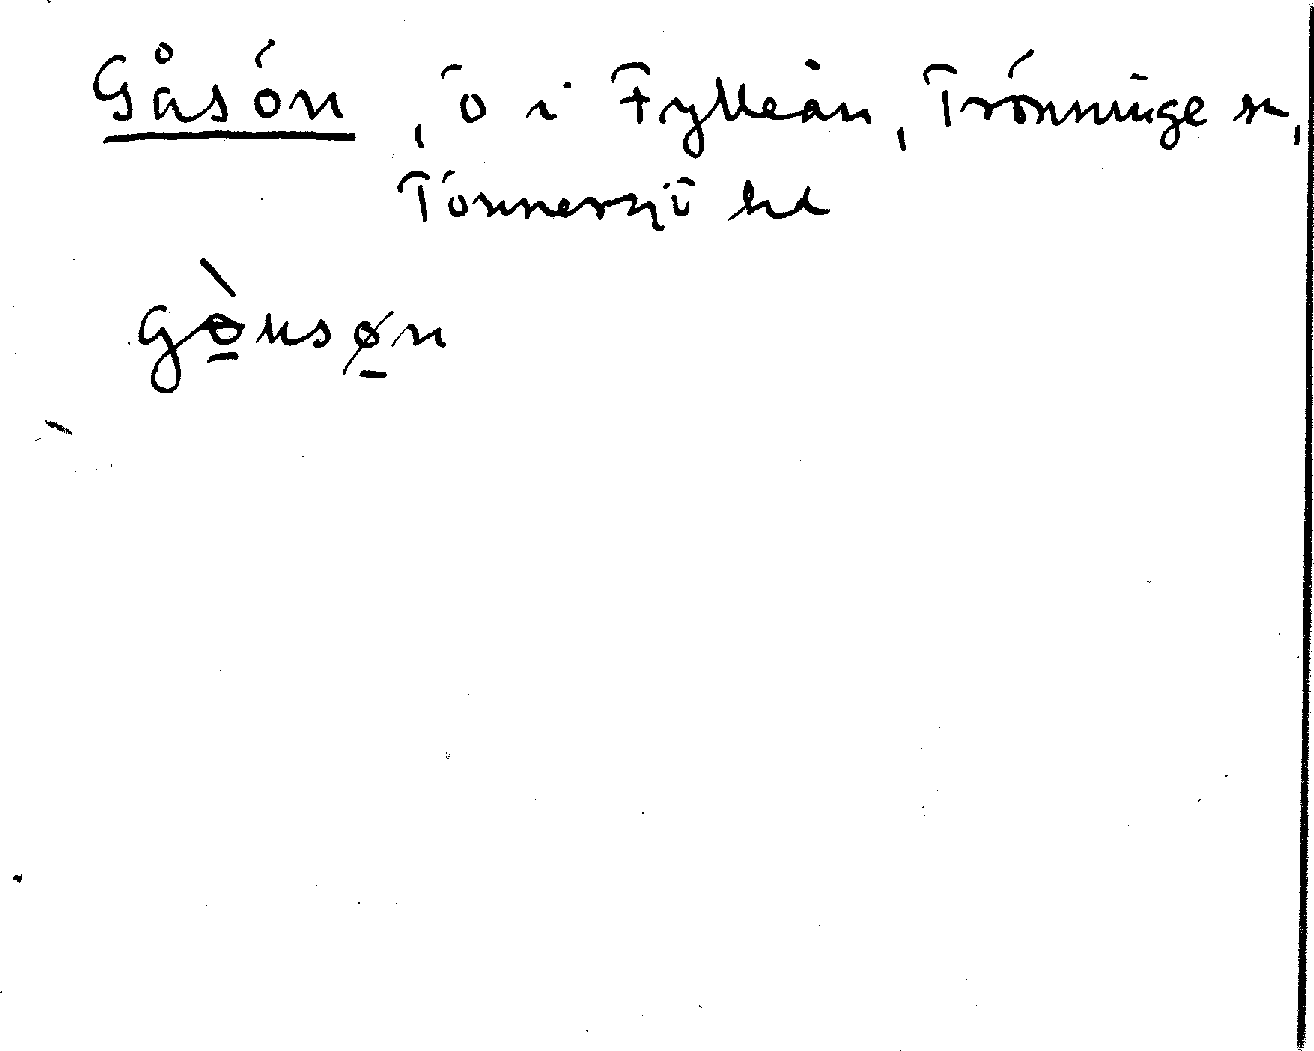 Gåsön, ö i Fylleån, Trönninge sn,
Tönnersjö hd
gɵ̀usøn